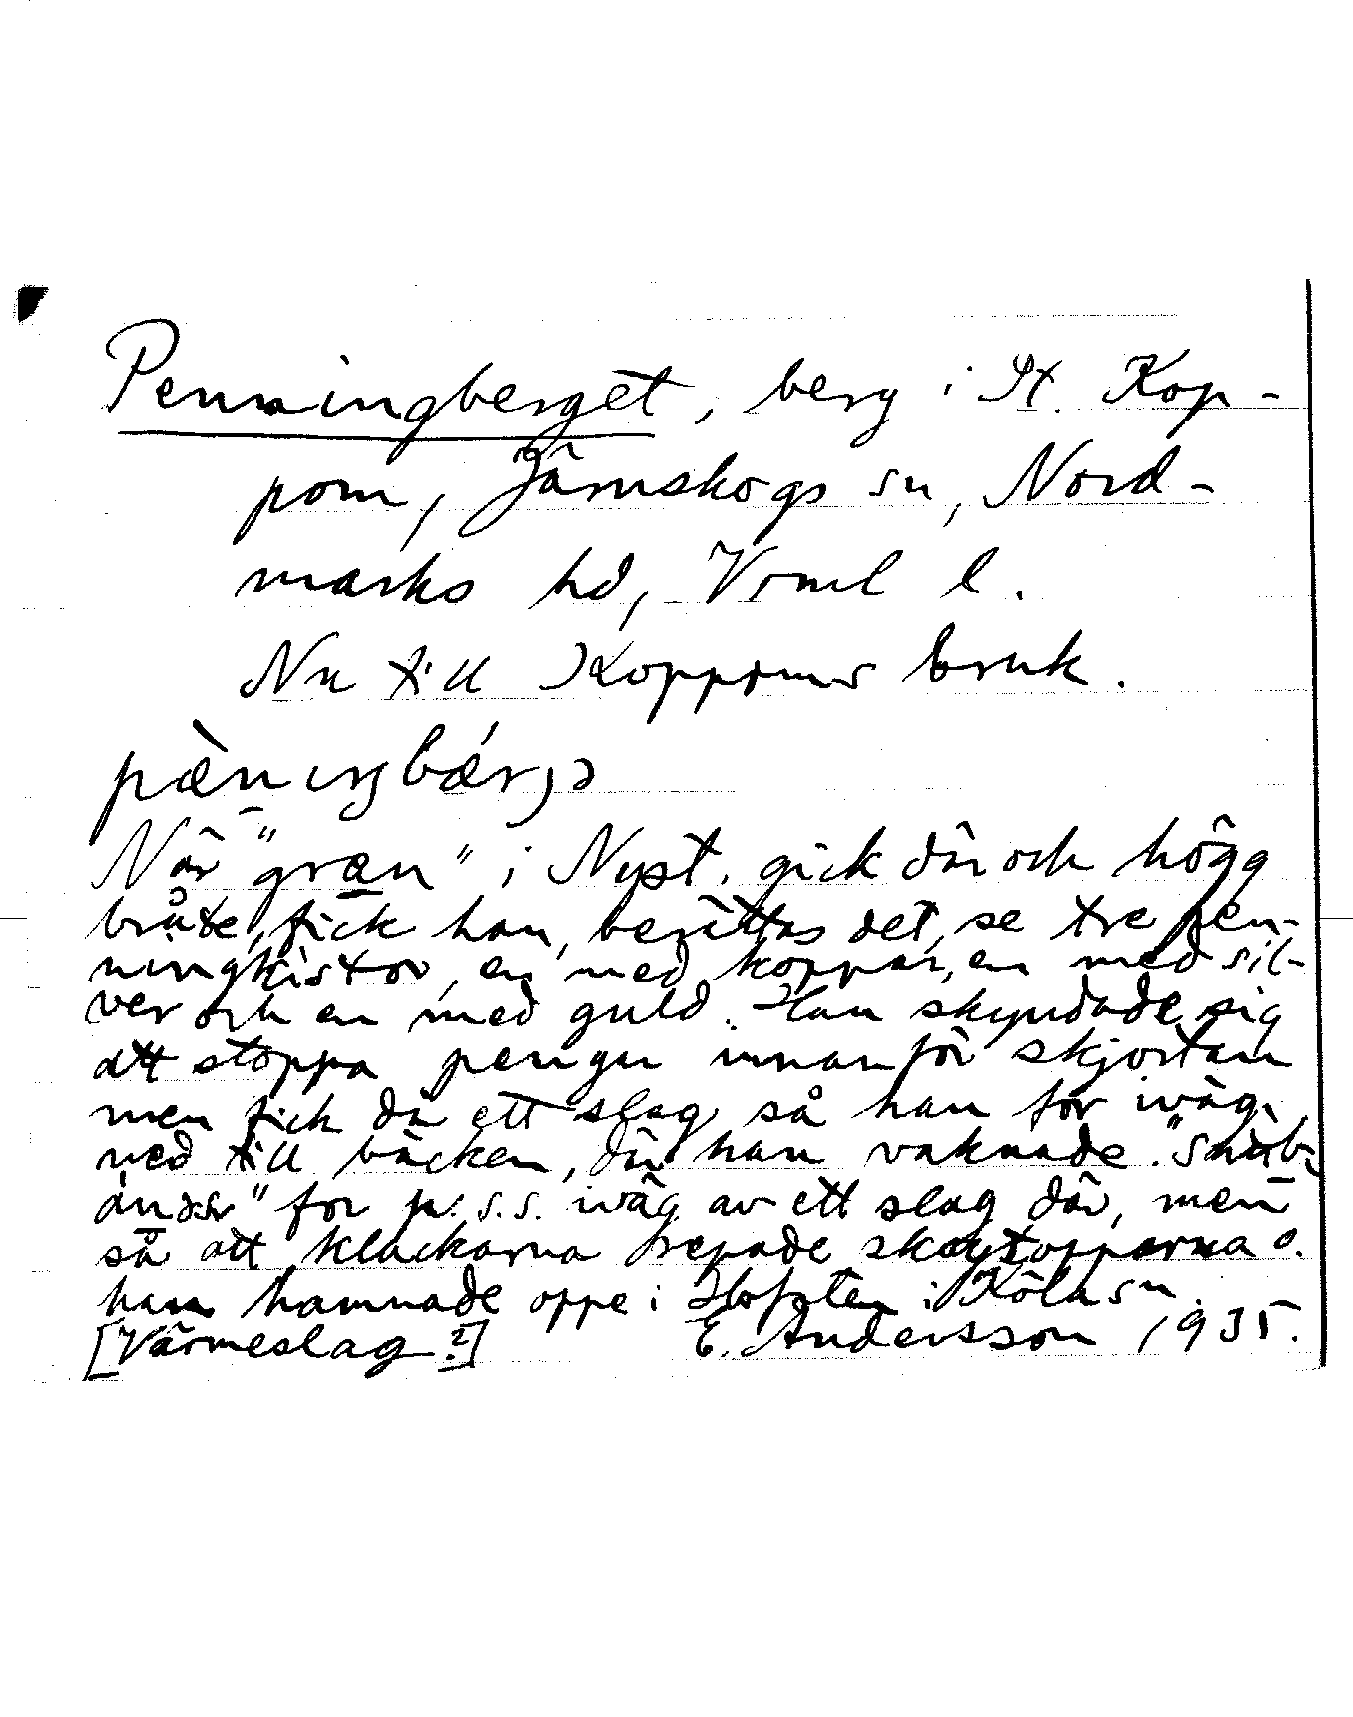 Penningberget, berg i St. Kop-
pom, Järnskogs sn, Nord-
marks hd, Vrml l.
Nu till Koppoms bruk.
pæ̀niŋbǽrjə
När "græn" i Nyst. gick där och högg
bråte, fick han, berättas det, se tre pen-
ningkistor, en med koppar, en med sil-
ver och en med guld. Han skyndade sig
att stoppa pengar innanför skjortan
men fick då ett slag så han för iväg
ned till bäcken, där han vaknade.
for p. s. s. iväg av ett slag där, men
så att klackarna repade skogstopparna o.
han hamnade oppe i Hofoten i Köla sn.
[Värmeslag?] E. Andersson 1935.